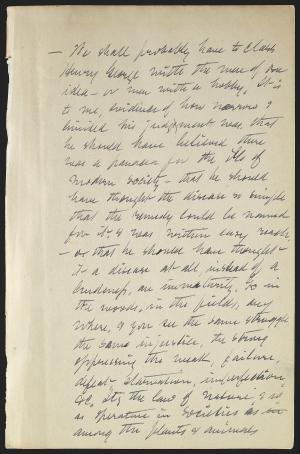 — We shall probably have to class
Henry George with the men of one
idea — or men with a hobby. It is
to me, evidence of how narrow &
limited his judgement was, that
he should have believed there
was a panacea for the ills of
modern society — that he should
have thought the disease so simple
that the remedy could be named
for it & was within easy reach
— or that he should have thought
it a disease at all, instead of a
crudeness, an immaturity. Go in
the woods, in the fields, any
where, & you see the same struggle
the same injustice, the strong
oppressing the weak, failure,
defeat, starvation, imperfection,
&c. Its the law of nature & is
as operative in societies as
among the plants & animals